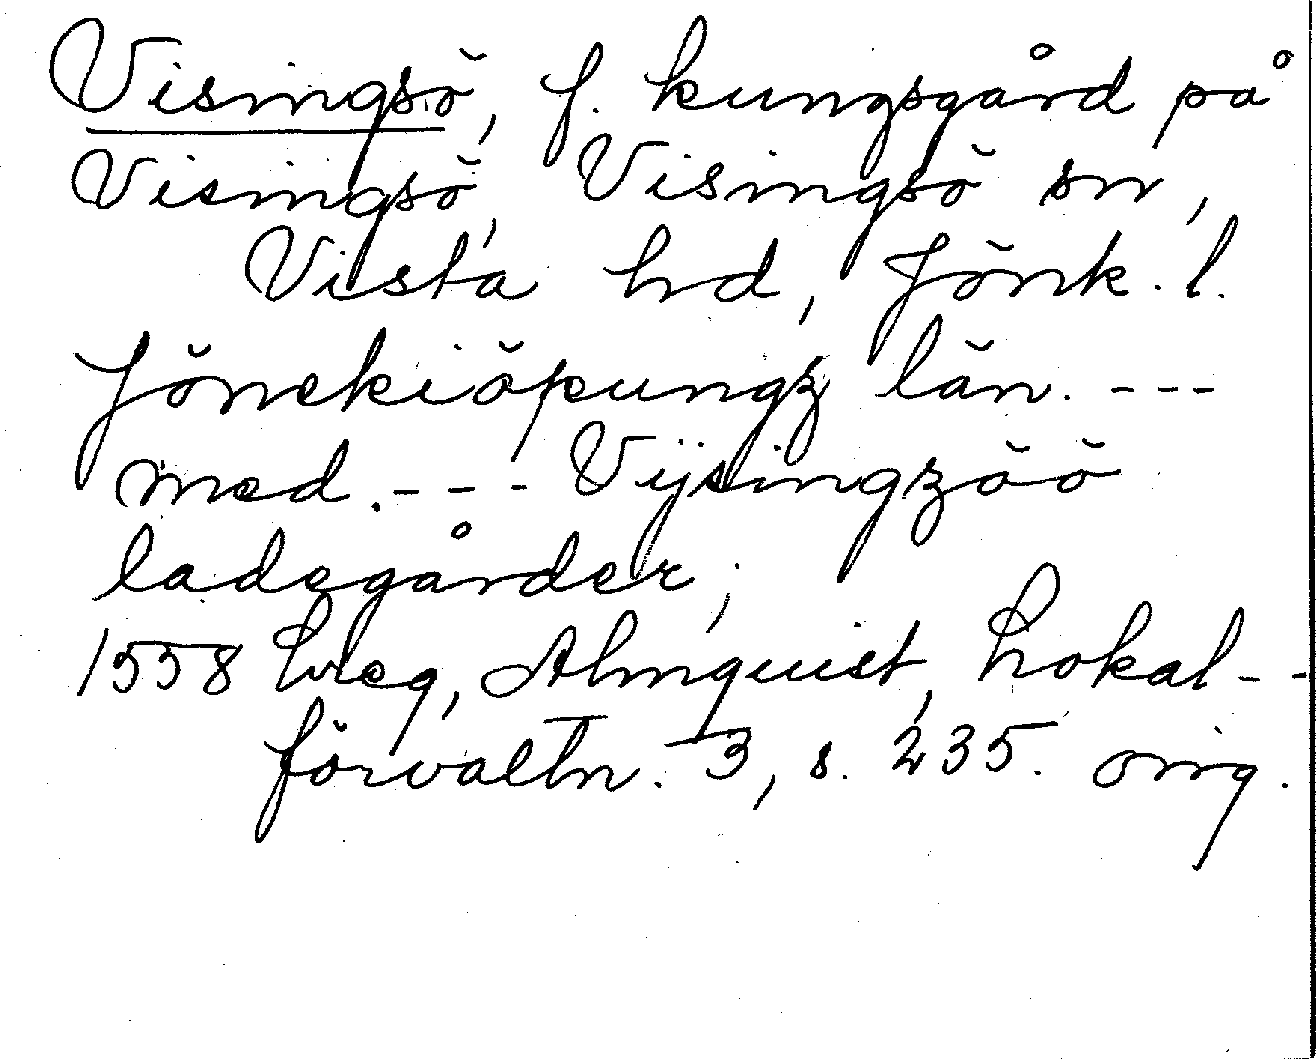 Visingsö, f. kungsgård på
Visingsö, Visingsö sn,
Vista hd, Jönk. l.
Jönekiöpungz län. ---
med. --- Vijsingzöö
ladegårder;
1558 Lreg, Almquist, Lokal-
förvaltn. 3, s. 235. orig.